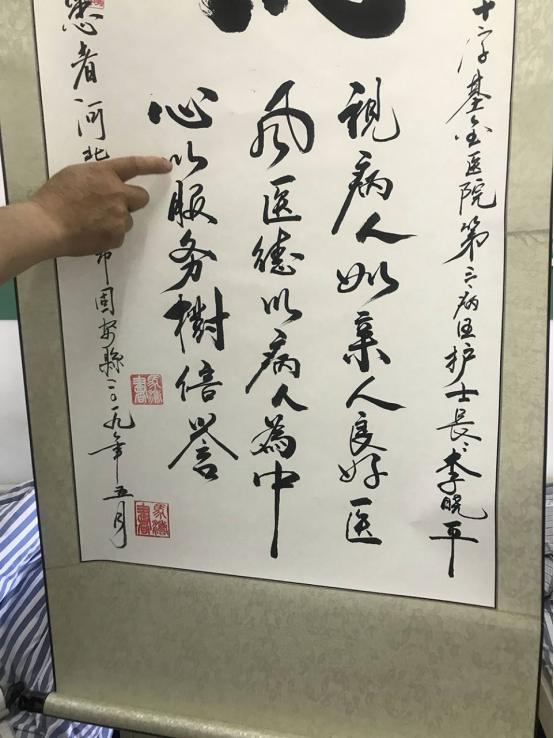 十字基金医院第三病区护士长：李晓平
視病人如亲人良好医
风医德以病人為中
心以服务樹信誉
患者河北市固安縣二〇一九年五月